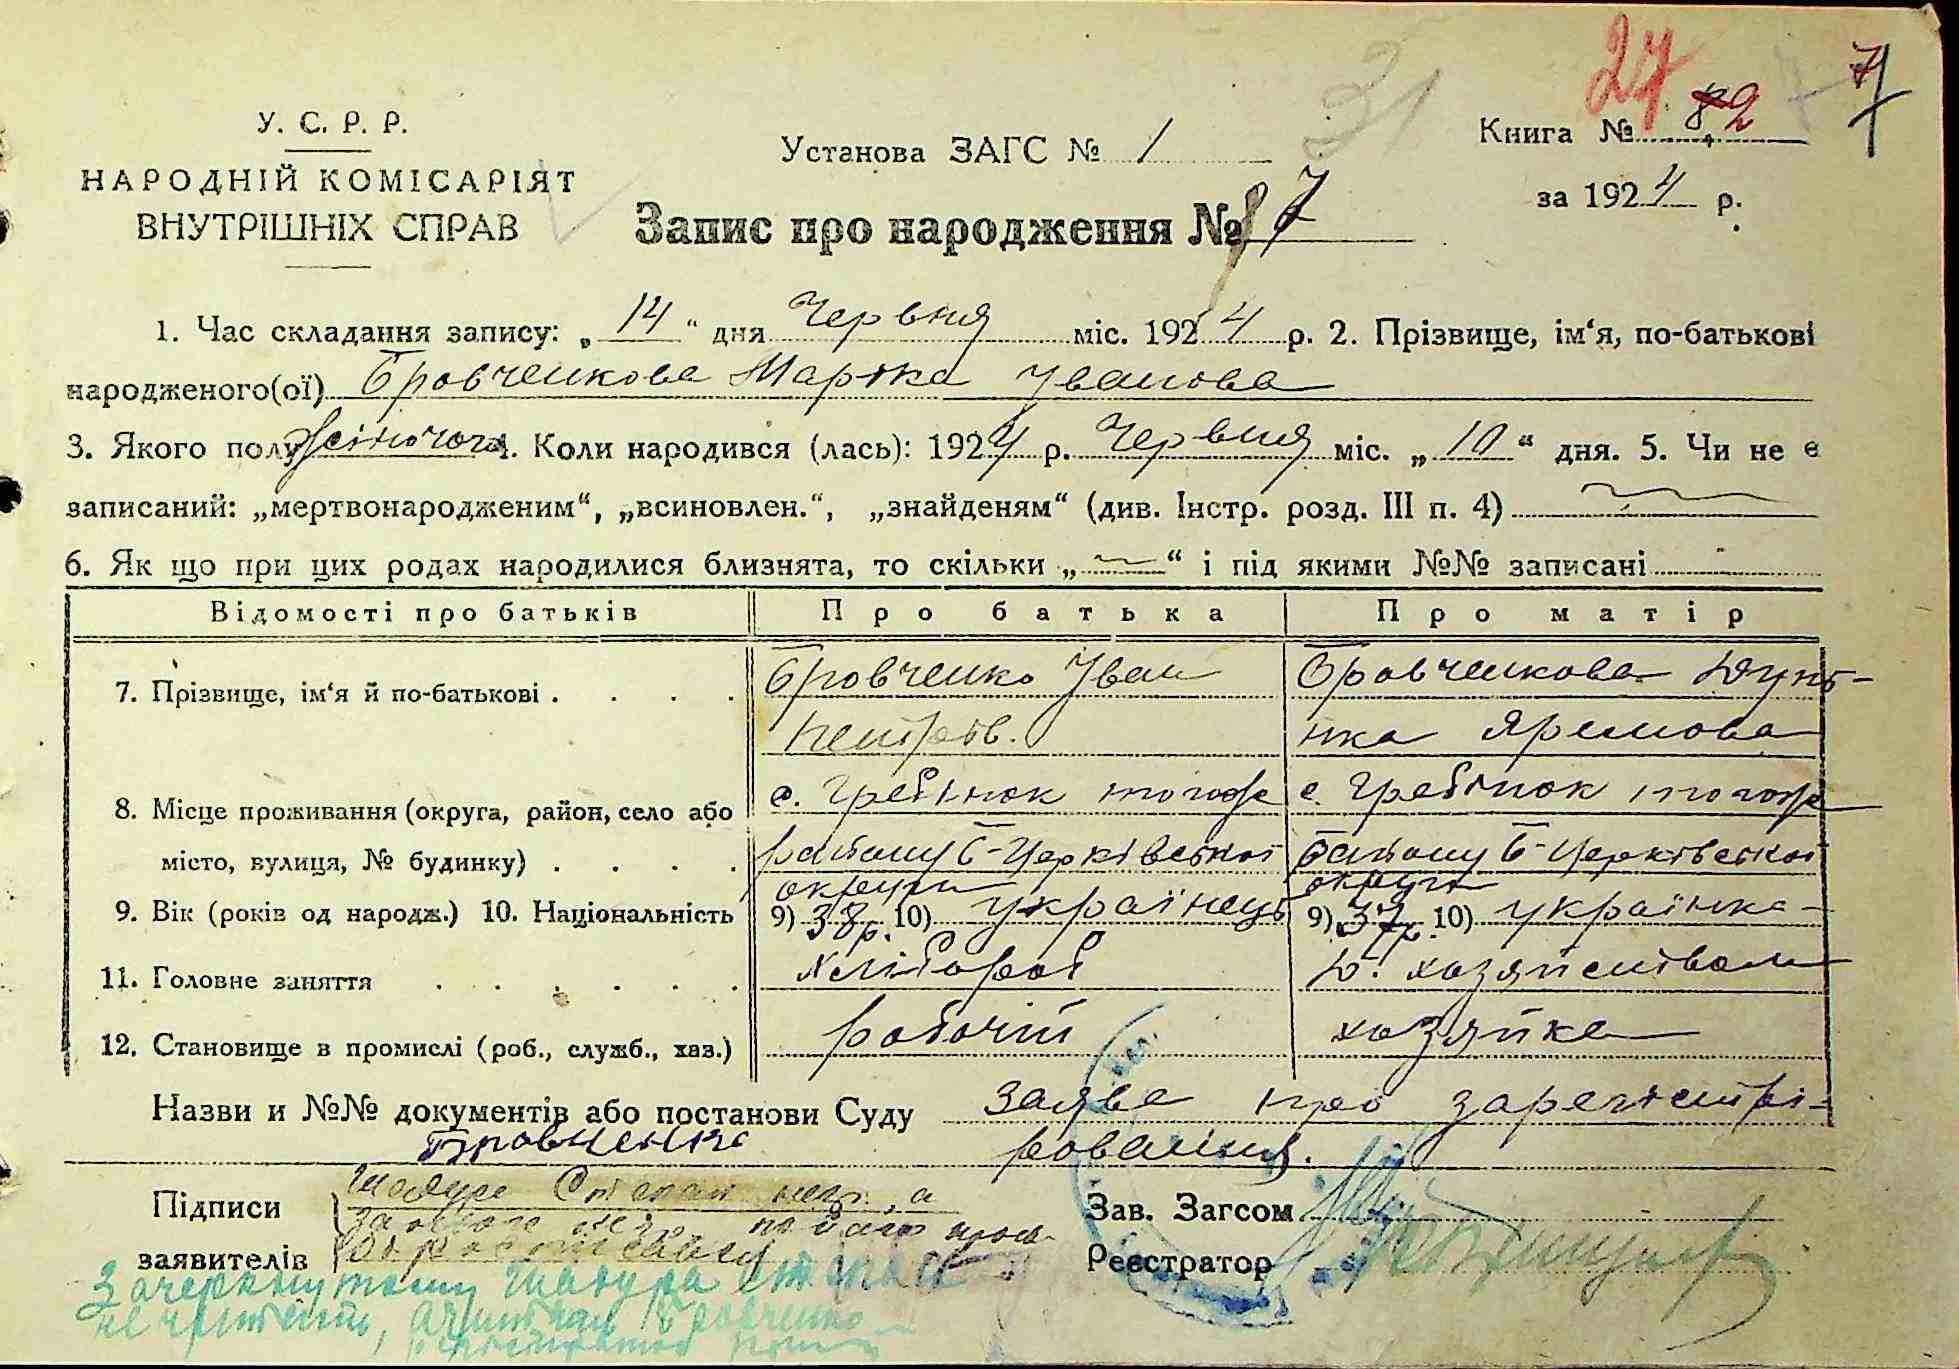 27
7
31
У. С. Р. Р.
НАРОДНІЙ КОМІСАРІЯТ
ВНУТРІШНІХ СПРАВ
Установа ЗАГС № 1
Книга № 2
за 1924 р.
Запис про народження № 17
1. Час складання запису: „14“ дня Червня міс. 1924 р. 2. Прізвище, ім‘я, по-батькові
народженого(ої) Бровченкова Марика Іванова
3. Якого полу жіночого 4. Коли народився (лась): 1924 р. Червня міс. „10“ дня. 5. Чи не є
записаний: „мертвонародженим“, „всиновлен.“, „знайденям“ (див. Інстр. розд. III п. 4)
6. Як що при цих родах народилися близнята, то скільки „ “ і під якими №№ записані
Відомості про батьків Про батька Про матір
7. Прізвище, ім‘я й по-батькові . . . . Бровченко Іван Бровченкова Дунь-
Петров. ка Яремова
8. Місце проживання (округа, район, село або с. Гребінок того же с. Гребінок того же
місто, вулиця, № будинку) . . . . району Б-Церківської району Б-Церківської
округи округи
9. Вік (років од народж.) 10. Національність 9) 38 р. 10) українець 9) 37 р. 10) українка
11. Головне заняття . . . . . . хлібороб д. хозяйством
12. Становище в промислі (роб., служб., хаз.) робочій хозяйка
Назви и №№ документів або постанови Суду заява про зарегістрі-
Бровченко рования.
Підписи Шадура Степан негр., а
заявителів за його
Зав. Загсом
Реєстратор
Зачеркнутому Шадура Степан
не читать, а читать Бровченко